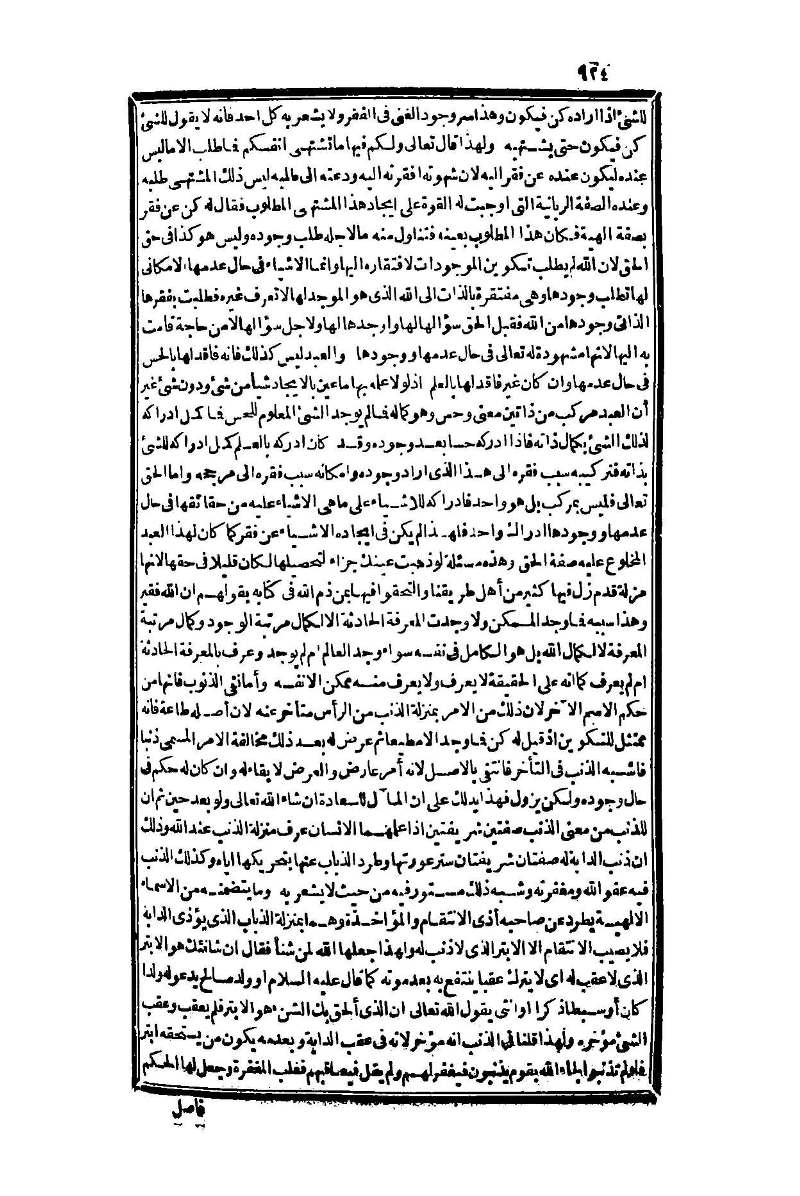 ٩٢٤
للشئ اذا اراده كن فيكون وهذا سر وجود الغنى فى الفقر ولا يشعر به كل احد فانه لا يقول للشئ
كن فيكون حتى يشتهيه ولهذا قال تعالى ولكم فيها ما تشتهى انفسكم فما طلب الا ما ليس
عنده ليكون عنده عن فقر اليه لان شهوته افقرته اليه ودعته الى طلبه ليس ذلك المشتهى طلبه
وعنده الصفة الربانية التى اوجبت له القوة على ايجاد هذا المشتهى المطلوب فقال له كن عن فقر
بصفة الهية فكان هذا المطلوب بعينه فتناول منه ما لاجله طلب وجوده وليس هو كذا فى حق
الحق لان الله لم يطلب تكوين الموجودات لافتقاره اليها وانما الاشياء فى حال عدمها الامكانى
لها تطلب وجودها وهى مفتقرة بالذات الى الله الذى هو الموجد لها لا تعرف غيره فطلبت بفقرها
الذاتى وجودها من الله فقبل الحق سؤالها لها واوجدها لها ولاجل سؤالها لا من حاجة قامت
به اليها لانها مشهودة له تعالى فى حال عدمها ووجودها والعبد ليس كذلك فانه فاقد لها بالحس
فى حال عدمها وان كان غير فاقد لها بالعلم اذ لولا علمه بها ما عين بالايجاد شيأ من شئ ودون شئ غير
أن العبد مركب من ذاتين معنى وحس وهو كماله فمالم يوجد الشئ المعلوم للحس فما كمل ادراكه
لذلك الشئ بكمال ذاته فاذا ادركه حسا بعد وجوده وقد كان ادركه بالعلم كمل ادراكه للشئ
بذاته فتركيبه سبب فقره الى هذا الذى اراد وجوده وامكانه سبب فقره الى مرجحه واما الحق
تعالى فليس بمركب بل هو واحد فادراكه للاشياء على ما هى الاشياء عليه من حقائقها فى حال
عدمها ووجودها ادراك واحد فلهذا لم يكن فى ايجاده الاشياء عن فقر كما كان لهذا العبد
المخلوع عليه صفة الحق وهذه مسئلة لو ذهبت عينك جزاء لتحصيلها لكان قليلا فى حقها لانها
مزلة قدم زل فيها كثير من أهل طريقنا والتحقوا فيها بمن ذم الله فى كتابه بقولهم ان الله فقير
وهذا سببه فما وجد الممكن ولا وجدت المعرفة الحادثة الا لكمال مرتبة الوجود وكمال مرتبة
المعرفة لا لكمال الله بل هو الكامل فى نفسه سواء وجد العالم ام لم يوجد وعرف بالمعرفة الحادثة
ام لم يعرف كما انه على الحقيقة لا يعرف ولا يعرف منه ممكن الا نفسه وأما نفى الذنوب فانها من
حكم الاسم الآخر لان ذلك من الامر بمنزلة الذنب من الرأس متأخر عنه لان أصله طاعة فانه
ممتثل للتكوين اذ قيل له كن فما وجد الا مطيعا ثم عرض له بعد ذلك مخالفة الامر المسمى ذنبا
فاشبه الذنب فى التأخر فانتفى بالاصل لانه أمر عارض والعرض لا بقاء له وان كان له حكم فى
حال وجوده ولكن يزول فهذا يدلك على ان المآل للسعادة ان شاء الله تعالى ولو بعد حين ثم ان
للذنب من معنى الذنب صفتين شريفتين اذا علمهما الانسان عرف منزلة الذنب عند الله وذلك
ان ذنب الدابة له صفتان شريفتان ستر عورتها وطرد الذباب عنها بتحريكها اياه وكذلك الذنب
فيه عفو الله ومغفرته وشبه ذلك مستور فيه من حيث لا يشعر به وما يتضمنه من الاسماء
الالهية يطرد عن صاحبه أذى الانتقام والمؤاخذة وهما بمنزلة الذباب الذى يؤذى الدابة
فلا يصيب الانتقام الا الابتر الذى لا ذنب له ولهذا جعلها الله لمن شنأ فقال ان شانئك هو الابتر
الذى لا عقب له اى لا يترك عقبا ينتفع به بعد موته كما قال عليه السلام او ولد صالح يدعو له ولدا
كان أو سبطا ذكرا او انثى يقول الله تعالى ان الذى ألحق بك الشين هو الابتر فلم يعقب وعقب
الشئ مؤخره ولهذا قلنا فى الذنب انه مؤخر لانه فى عقب الدابة وبعدمه يكون من يستحقه ابتر
فلو لم تذنبوا لجاء الله بقوم يذنبون فيغفر لهم ولم يقل فيعاقبهم فغلب المغفرة وجعل لها الحكم
فاصل